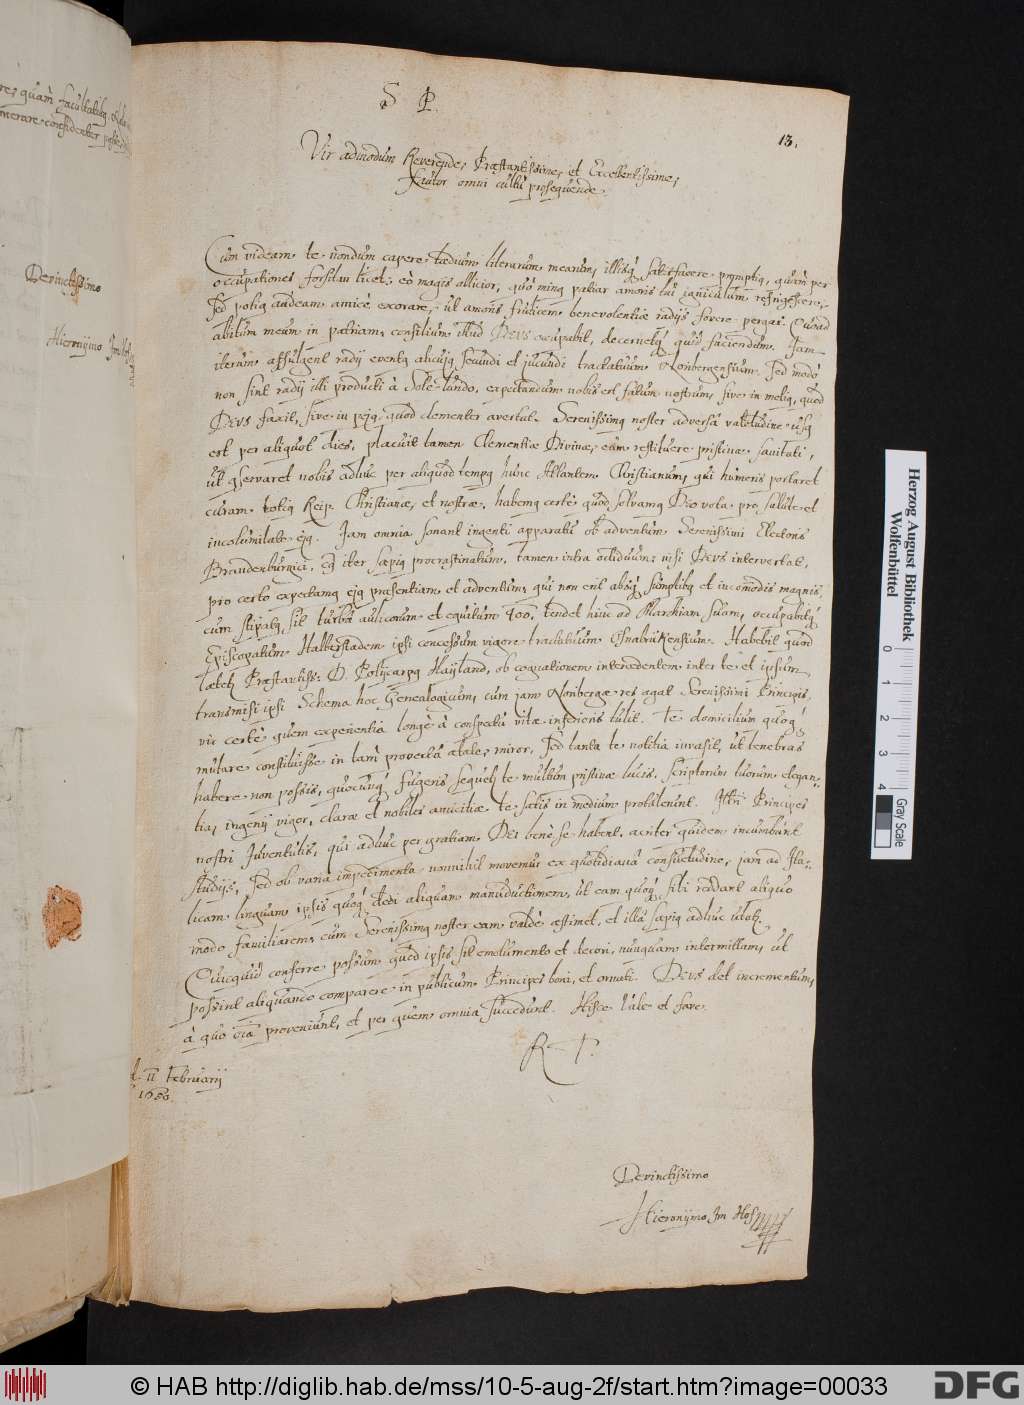 S P.
13.
Vir admodum Reverende, Præstantissime, et Excellentissime,
Fautor omni cultu prosequende.
Cum videam te nondum capere tædium literarum mearum, illisq satisfacere promptiq, quàm per
occupationes forsitan licet, eò magis allicior, quò minq patiar amoris tui igniculum refrigescere,
Sed potiq audeam amicè exorare, ut amoris fruticem benevolentiæ radijs fovere pergas. Quoad
abitum meum in patriam, consilium illud DEVS occupabit, decernetq quid faciendum. Jam
iterum affulgent radij eventq alicujq secundi et jucundi tractatuum Nonbergensium. Sed modò
non sint radij illi producti à Sole tardo, expectandum nobis est fatum nostrum, sive in meliq, quod
DEVS faxit, sive in pejq, quod clementer avertat. Serenissimq noster adversâ valetudine usq
est per aliquot dies, placuit tamen Clementiæ Divinæ, eum restituere pristinæ sanitati,
ut qservaret nobis adhuc per aliquod tempq hunc Atlantem Christianum, qui humeris portaret
curam totiq Reip. Christianæ, et nostræ, habemq certè quod solvamq Deo vota pro salute et
incolumitate ejq. Jam omnia sonant ingenti apparatu ob adventum Serenissimi Electoris
Brandenburgici, cujq iter sæpiq procrastinatum, tamen intra octiduum, nisi DEVS intervertat,
pro certo expectamq ejq præsentiam et adventum, qui non erit absq sumptibq et incomodis magnis,
cum stipatq sit turbâ aulicorum et equitum 400. tendet hinc ad Marchiam suam, occupabitq
Episcopatum Halberstadem ipsi concessum vigore tractatuum Osnabrükensium. Habebit quod
lætetq Præstantiss: D. Polycarpq Heyland, ob cognationem intercedentem inter te et ipsum
transmisi ipsi Schema hoc Genealogicum, cum jam Nonbergæ res agat Serenissimi Principis,
vir certè quem experientia longè à conspectu vitæ inferioris tulit. Te domicilium quoq
mutare constituisse in tam provectâ ætate, miror, Sed tanta te notitia invasit, ut tenebras
habere non possis, quocunq fugeris sequetq te multum pristinæ lucis. Scriptorum tuorum elegan-
tia, ingenij vigor, claræ et nobiles amicitiæ te satis in medium protulerunt. Ittri Principes
nostri Juventutis, qui adhuc per gratiam Dei benè se habent, acriter quidem incumbunt
studijs, Sed ob varia impedimenta nonnihil movemur ex quotidianâ consuetudine, jam ad Ita-
licam linguam ipsis quoq dedi aliquam manuductionem, ut eam quoq sibi reddant aliquo
modo familiarem, cum Serenissimq noster eam valdè æstimet, et illâ sæpiq adhuc utatq.
Quicquid conferre possum quod ipsis sit emolumento et decori, nunquam intermittam, ut
possint aliquando comparere in publicum Principes boni, et ornati. DEVS det incrementum,
à quo oia proveniunt, et per quem omnia succedunt. Hisce Vale et fave.
R T.
11 Februarij
1650.
Devinctissimo
Hieronymo Im Hof
Devinctissimo
Hieronymo
Herzog August Bibliothek
Wolfenbüttel
0 1 2 3 4
Gray Scale
© HAB http://diglib.hab.de/mss/10-5-aug-2f/start.htm?image=00033
DFG